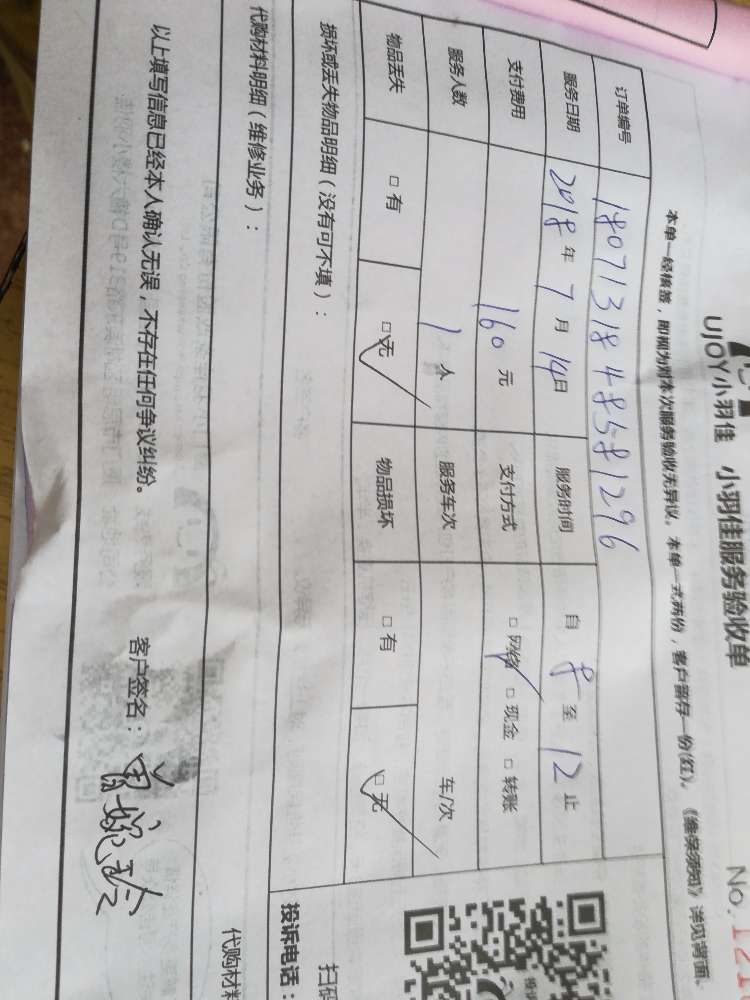 UJOY小羽佳 小羽佳服务验收单
No. 121
本单一经核签，即视为对本次服务验收无异议。本单一式两份，客户留存一份(红)。《维保须知》详见背面。
订单编号 1807131848581296
服务日期 2018年7月14日 服务时间 自8至12止
支付费用 160元 支付方式 □网络 □现金 □转账
服务人数 1人 服务车次 车/次
物品丢失 □有 □无 物品损坏 □有 □无
损坏或丢失物品明细（没有可不填）：
代购材料明细（维修业务）：
以上填写信息已经本人确认无误，不存在任何争议纠纷。 客户签名：
扫码
投诉电话：
代购材料